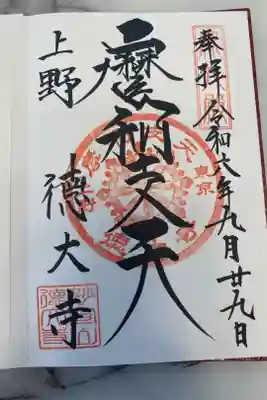 奉拝 令和六年九月廿九日
摩利支天
上野 徳大寺
東京